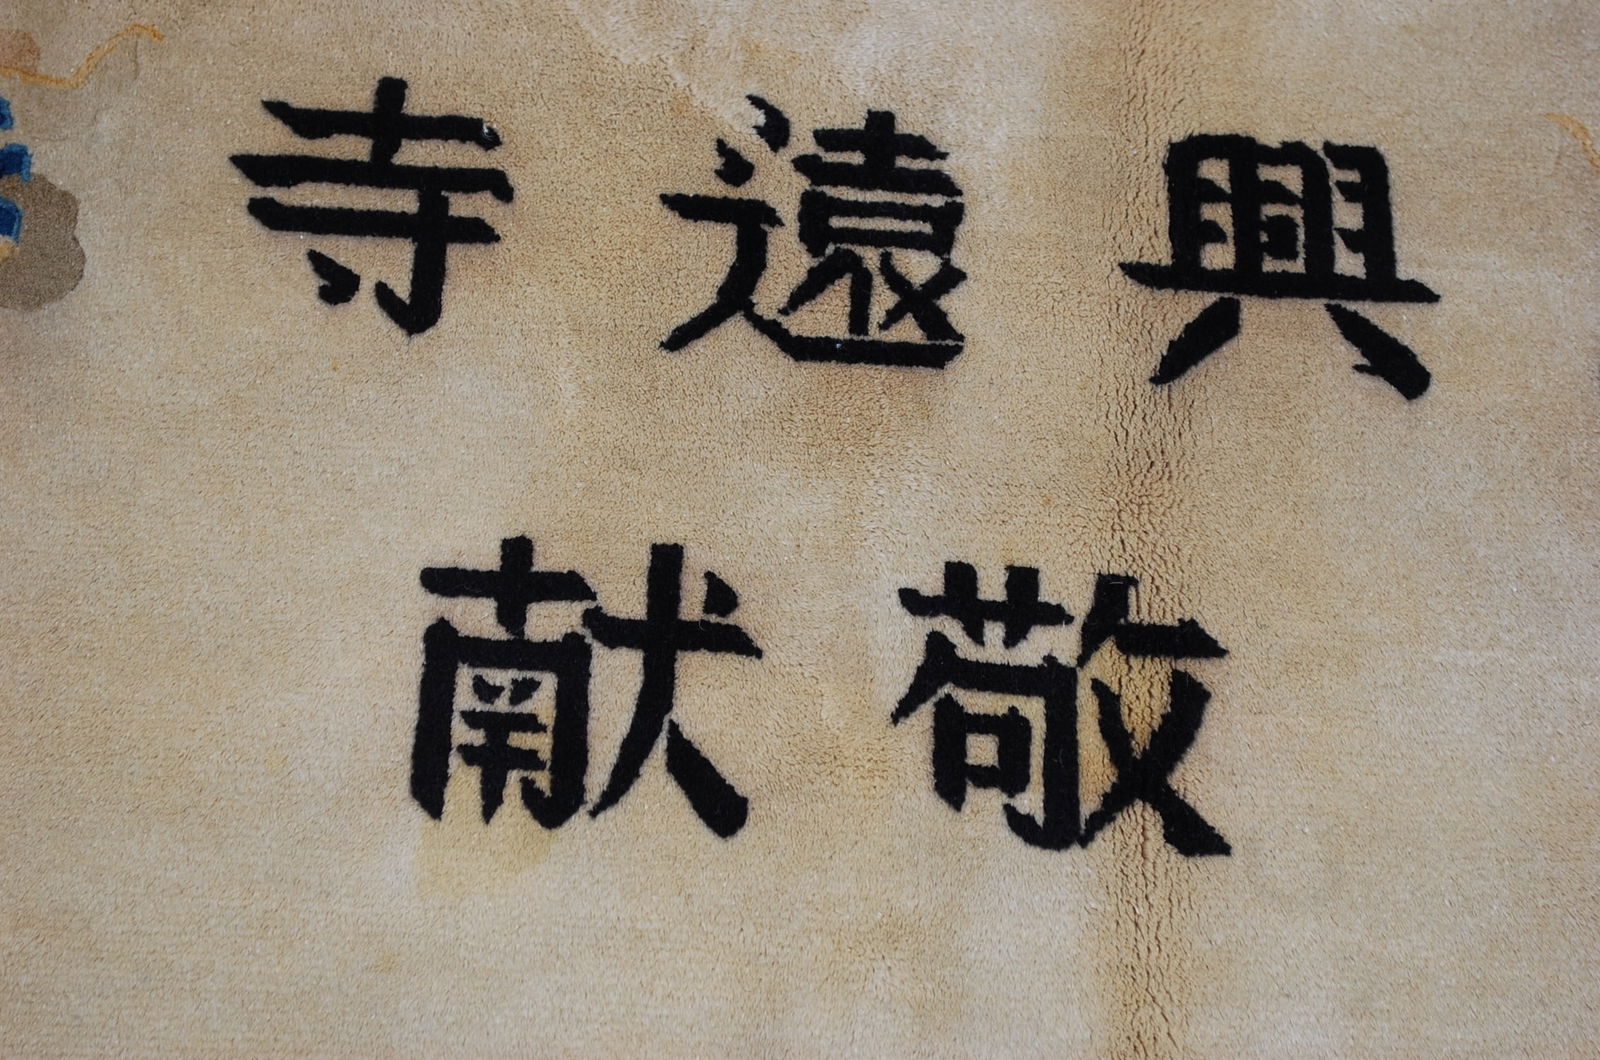 興遠寺
敬献